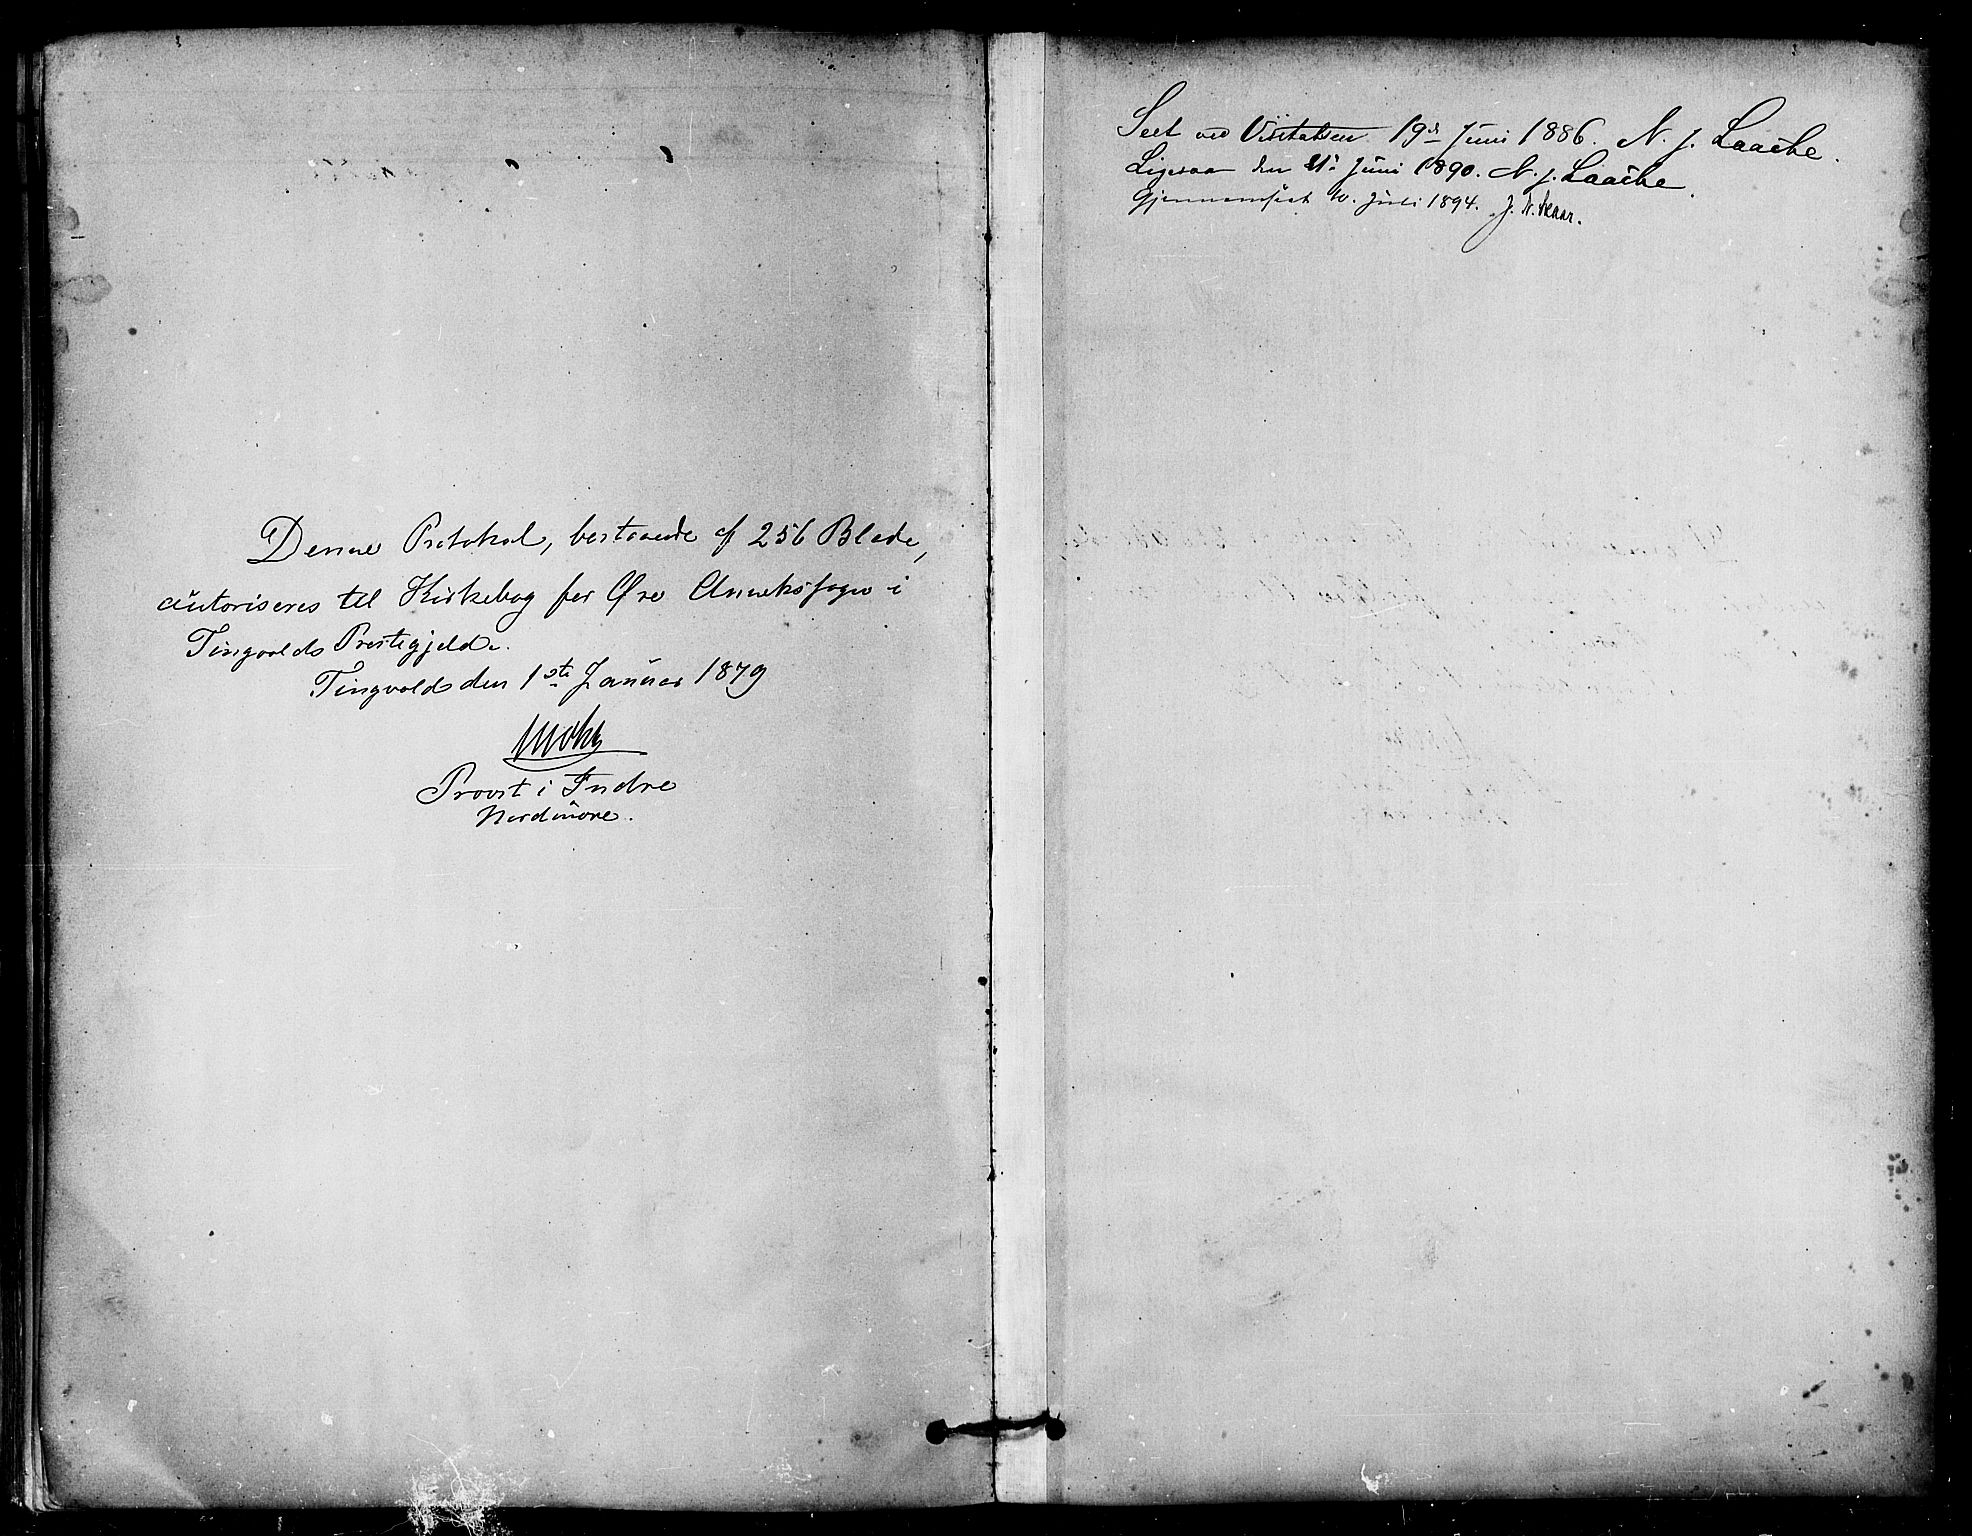 Denne Protokol, bestaaende af 256 Blade,
autoriseres til Kirkebog for Øre Annekssogn i
Tingvolds Prestegjeld.
Tingvold den 1ste Januar 1879
Provst i Indre
Nordmøre.
Seet ved Visitatsen 19de Juni 1886. N. J. Laache.
Ligesaa den 21de Juni 1890. N. J. Laache.
Gjennemseet 10. Juli 1894. J. N. Skaar.